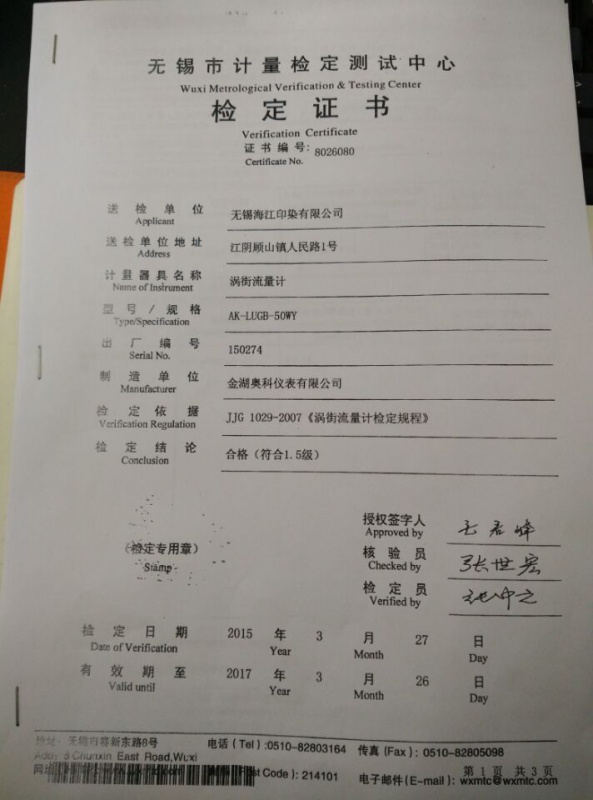 无锡市计量检定测试中心
Wuxi Metrological Verification & Testing Center
检定证书
Verification Certificate
证书编号: 8026080
Certificate No.
送检单位 无锡海江印染有限公司
Applicant
送检单位地址 江阴顾山镇人民路1号
Address
计量器具名称 涡街流量计
Name of Instrument
型号/规格 AK-LUGB-50WY
Type/Specification
出厂编号 150274
Serial No.
制造单位 金湖奥科仪表有限公司
Manufacturer
检定依据 JJG 1029-2007《涡街流量计检定规程》
Verification Regulation
检定结论 合格(符合1.5级)
Conclusion
授权签字人
Approved by
(检定专用章) 核验员 张世宏
Stamp Checked by
检定员
Verified by
检定日期 2015 年 3 月 27 日
Date of Verification Year Month Day
有效期至 2017 年 3 月 26 日
Valid until Year Month Day
地址: 无锡市春新东路8号 电话(Tel):0510-82803164 传真(Fax): 0510-82805098
Add: 8 Chunxin East Road,Wuxi
Post Code): 214101 电子邮件(E-mail): wxmtc@wxmtc.com
第1页 共3页